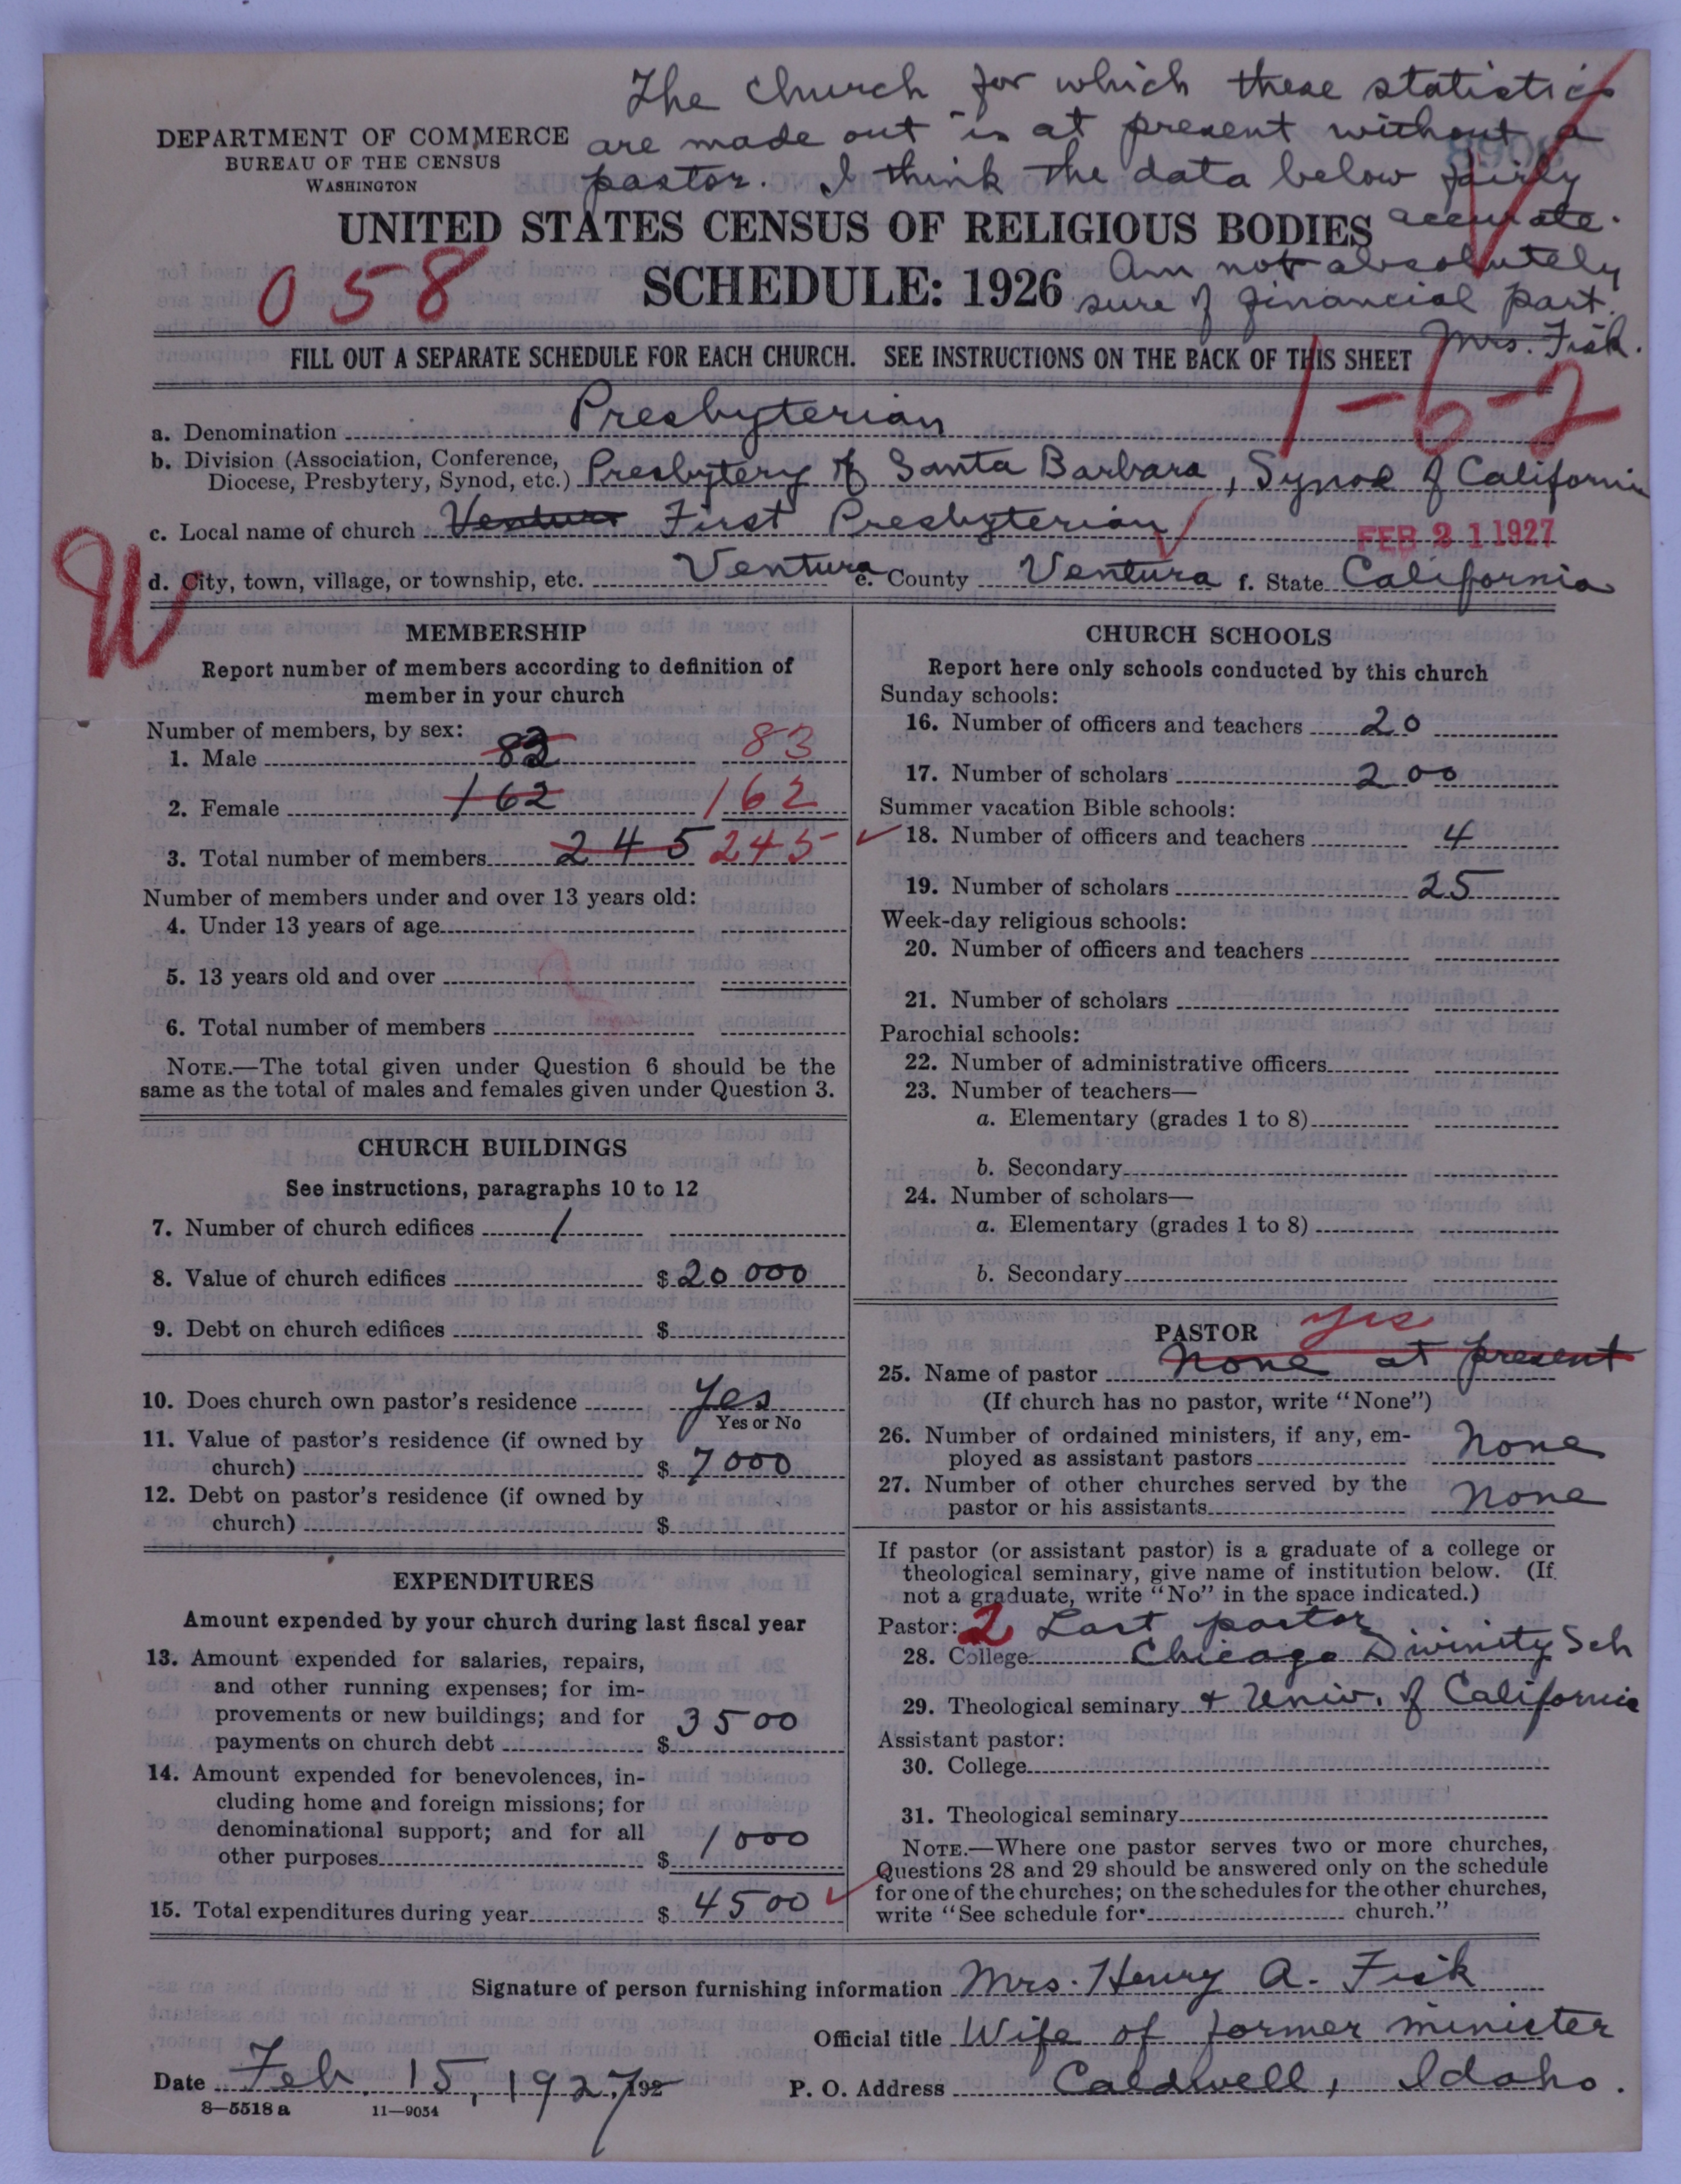 The church for which these statistics
are made out is at present without a
pastor. I think the data below fairly
accurate.
Am not absolutely
sure of financial part.
Mrs. Fisk.
DEPARTMENT OF COMMERCE
BUREAU OF THE CENSUS
WASHINGTON
UNITED STATES CENSUS OF RELIGIOUS BODIES
SCHEDULE: 1926
058
FILL OUT A SEPARATE SCHEDULE FOR EACH CHURCH. SEE INSTRUCTIONS ON THE BACK OF THIS SHEET
1-6-2
a. Denomination Presbyterian
b. Division (Association, Conference,
Diocese, Presbytery, Synod, etc.) Presbytery of Santa Barbara, Synod of California
c. Local name of church Ventura First Presbyterian
FEB 21 1927
W
d. City, town, village, or township, etc. Ventura e. County Ventura f. State California
MEMBERSHIP
Report number of members according to definition of
member in your church
Number of members, by sex:
1. Male 83 83
2. Female 162 162
3. Total number of members 245 245
Number of members under and over 13 years old:
4. Under 13 years of age
5. 13 years old and over
6. Total number of members
NOTE.—The total given under Question 6 should be the
same as the total of males and females given under Question 3.
CHURCH BUILDINGS
See instructions, paragraphs 10 to 12
7. Number of church edifices 1
8. Value of church edifices $20 000
9. Debt on church edifices $
10. Does church own pastor's residence Yes
Yes or No
11. Value of pastor's residence (if owned by
church) $ 7000
12. Debt on pastor's residence (if owned by
church) $
EXPENDITURES
Amount expended by your church during last fiscal year
13. Amount expended for salaries, repairs,
and other running expenses; for im-
provements or new buildings; and for
payments on church debt $ 3500
14. Amount expended for benevolences, in-
cluding home and foreign missions; for
denominational support; and for all
other purposes $ 1000
15. Total expenditures during year $ 4500
CHURCH SCHOOLS
Report here only schools conducted by this church
Sunday schools:
16. Number of officers and teachers 20
17. Number of scholars 200
Summer vacation Bible schools:
18. Number of officers and teachers 4
19. Number of scholars 25
Week-day religious schools:
20. Number of officers and teachers
21. Number of scholars
Parochial schools:
22. Number of administrative officers
23. Number of teachers—
a. Elementary (grades 1 to 8)
b. Secondary
24. Number of scholars—
a. Elementary (grades 1 to 8)
b. Secondary
PASTOR yes
25. Name of pastor None at present
(If church has no pastor, write "None")
26. Number of ordained ministers, if any, em-
ployed as assistant pastors None
27. Number of other churches served by the
pastor or his assistants None
If pastor (or assistant pastor) is a graduate of a college or
theological seminary, give name of institution below. (If
not a graduate, write "No" in the space indicated.)
Pastor: 2 Last pastor
28. College Chicago Divinity Sch
29. Theological seminary + Univ. of California
Assistant pastor:
30. College
31. Theological seminary
NOTE.—Where one pastor serves two or more churches,
Questions 28 and 29 should be answered only on the schedule
for one of the churches; on the schedules for the other churches,
write "See schedule for church."
Signature of person furnishing information Mrs. Henry A. Fisk
Official title Wife of former minister
Date Feb. 15, 1927, 192
P. O. Address Caldwell, Idaho.
8—5518 a 11—9054